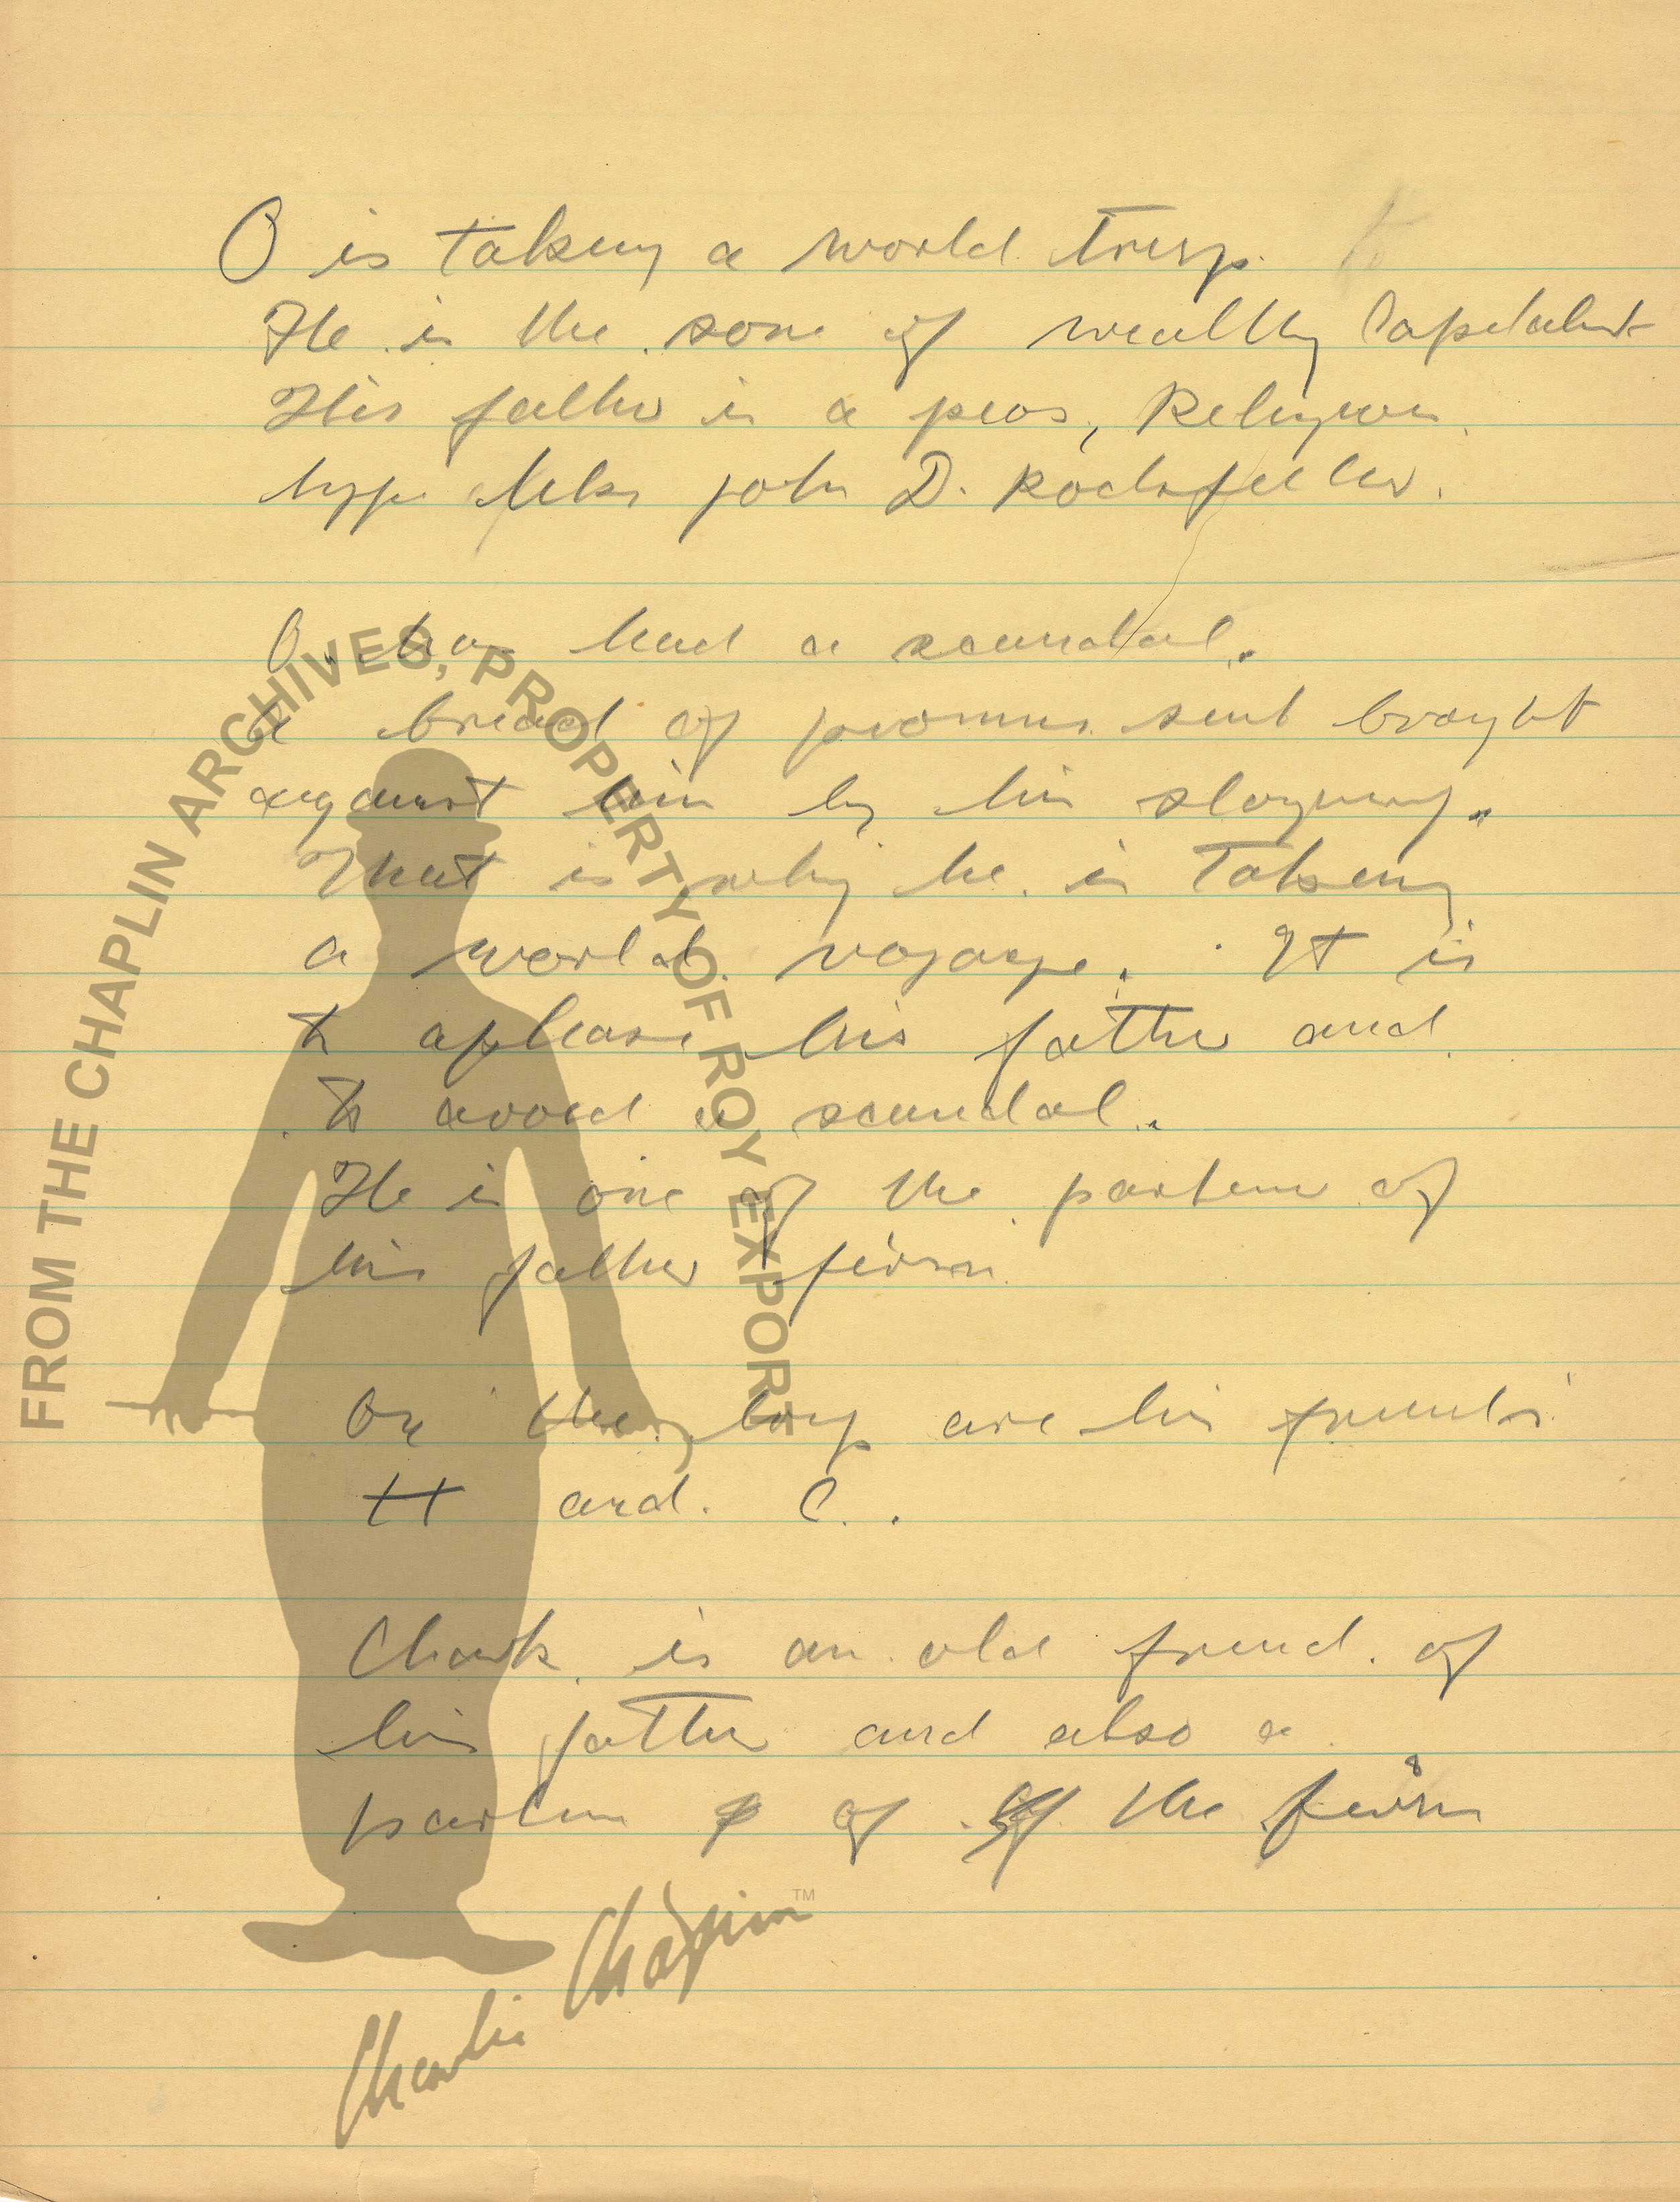 O is taking a world trip.
He is the sone of wealthy Capitalist
His father is a pios, Religious
type like john D. Rockfeller.
O. has had a scandal.
A breach of promise suit brought
against him by his
That is why he is taking
a world voyage. It is
to aplease his father and
to avoid a scandal.
He is one of the partner of
his father firm
On the trip are his friends
H and. C..
Clark is an old friend. of
his father and also a
partner of of the firm
FROM THE CHAPLIN ARCHIVES, PROPERTY OF ROY EXPORT
Charlie Chaplin™